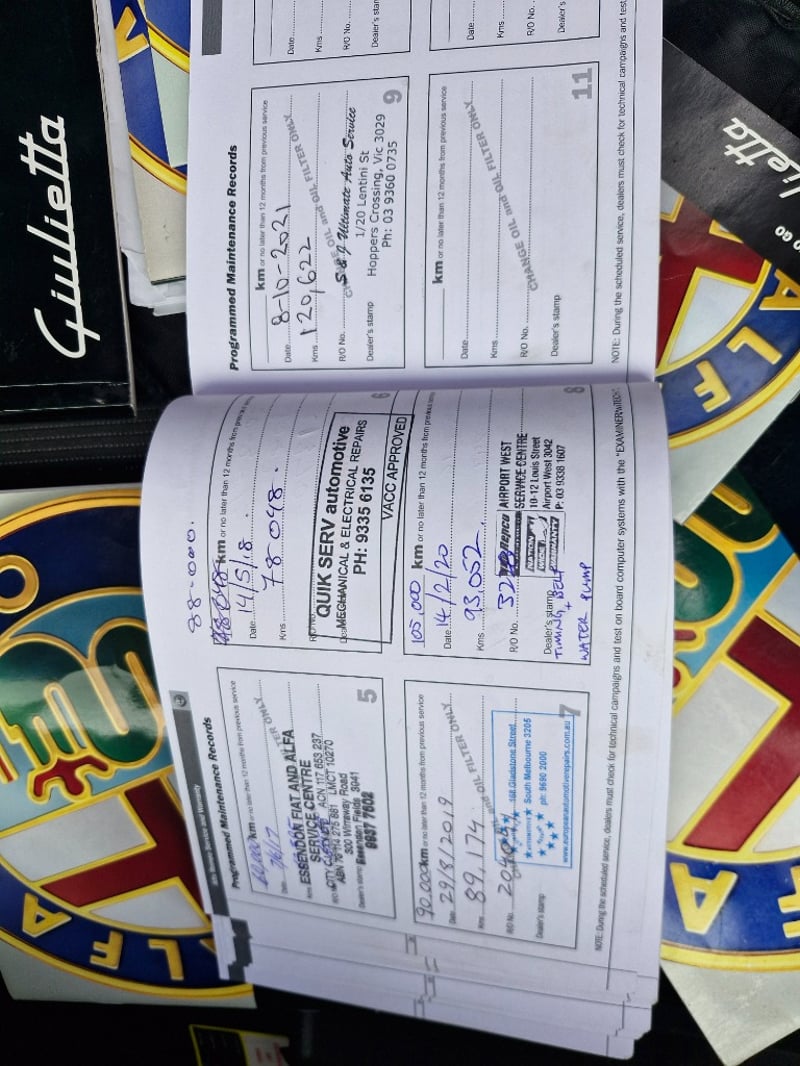 Giulietta
Alfa Romeo Service and Warranty
Programmed Maintenance Records
60,000 km or no later than 12 months from previous service
Date
Kms
ESSENDON FIAT AND ALFA
SERVICE CENTRE
ACN 117 653 237
ABN 76 114 275 881 LMCT 10270
300 Wirraway Road
Dealer's stamp Essendon Fields 3041
9937 7602
5
88-000.
km or no later than 12 months from previous service
Date 14/5/18.
Kms 78048.
QUIK SERV automotive
MECHANICAL & ELECTRICAL REPAIRS
PH: 9335 6135
VACC APPROVED
6
90,000 km or no later than 12 months from previous service
Date 29/8/2019
Kms 89,174
CHANGE OIL and OIL FILTER ONLY
R/O No.
168 Gladstone Street
South Melbourne 3205
ph: 9690 2000
Dealer's stamp
www.europeanautomotiverepairs.com.au
7
105,000 km or no later than 12 months from previous service
Date 14/2/20
Kms 93,052.
R/O No.
repco AIRPORT WEST
SERVICE CENTRE
NATION WIDE WARRANTY
10-12 Louis Street
Airport West 3042
P: 03 9338 1607
Dealer's stamp
TIMING BELT
+
WATER PUMP
8
NOTE: During the scheduled service, dealers must check for technical campaigns and test on board computer systems with the "EXAMINER/wiTECH".
Date
Kms
R/O No.
Dealer's stamp
Date
Kms
R/O No.
Dealer's
Programmed Maintenance Records
km or no later than 12 months from previous service
Date 8-10-2021
Kms 120,622
CHANGE OIL and OIL FILTER ONLY
R/O No.
S & J Ultimate Auto Service
1/20 Lentini St
Hoppers Crossing, Vic 3029
Ph: 03 9360 0735
Dealer's stamp
9
km or no later than 12 months from previous service
Date
Kms
CHANGE OIL and OIL FILTER ONLY
R/O No.
Dealer's stamp
11
NOTE: During the scheduled service, dealers must check for technical campaigns and test
ALFA
ALF
A